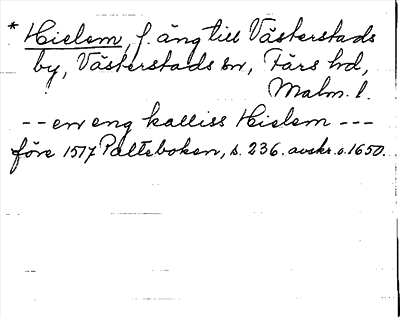 * Hielem, f. äng till Västerstads
by, Västerstads sn, Färs hd,
Malm. l.
-- en eng kalliss Hielem ---
före 1517 Palteboken, s. 236. avskr. o. 1650.